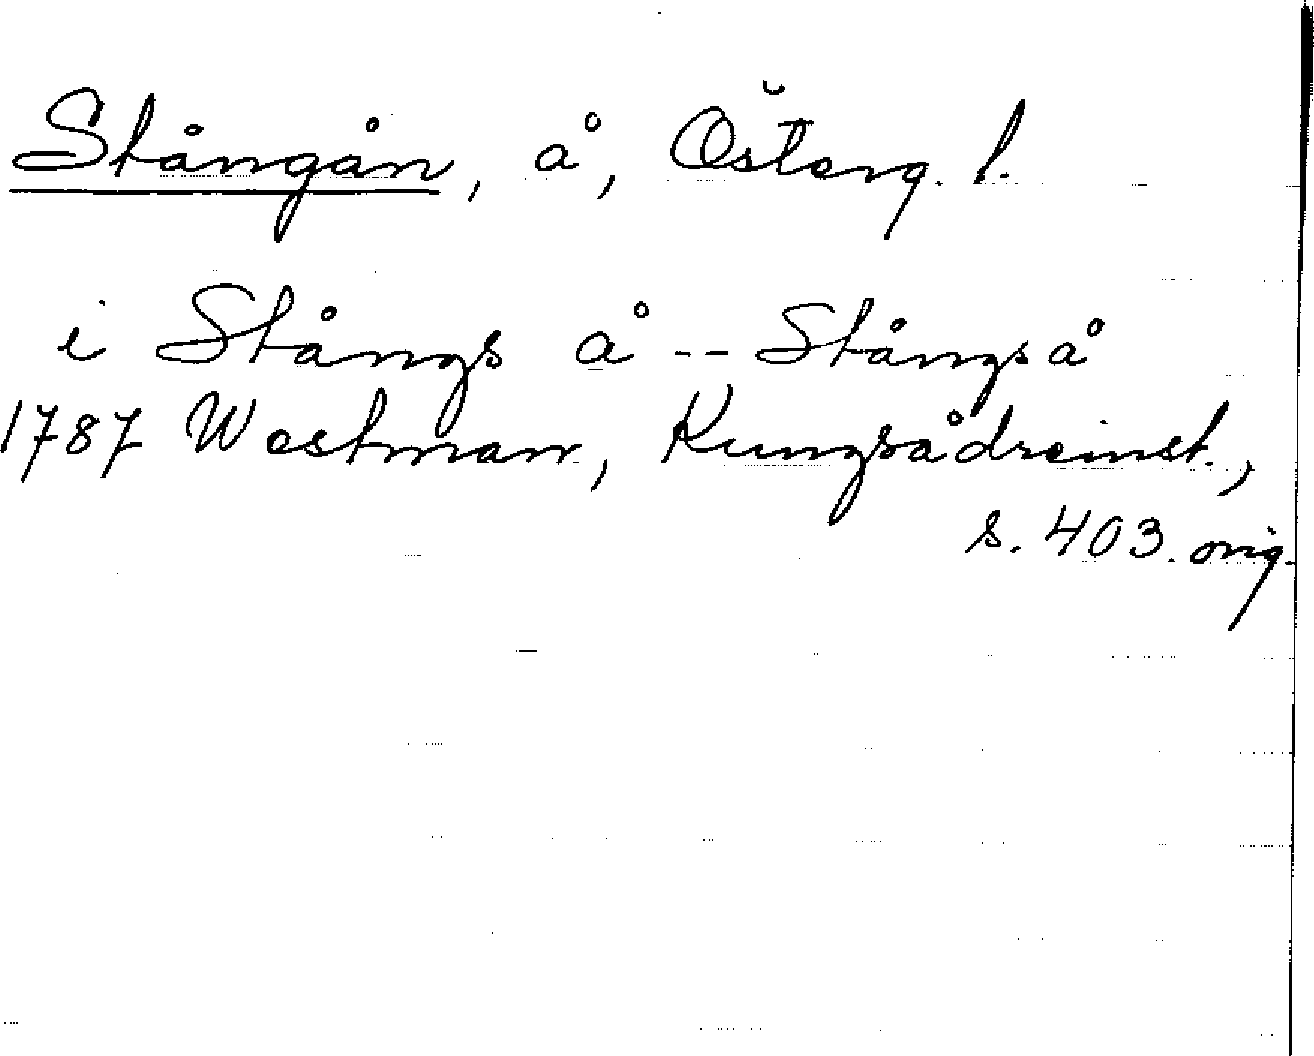 Stångån, å, Österg. l.
i Stångs å -- Stångså
1787 Westman, Kungsådreinst.,
s. 403. orig.